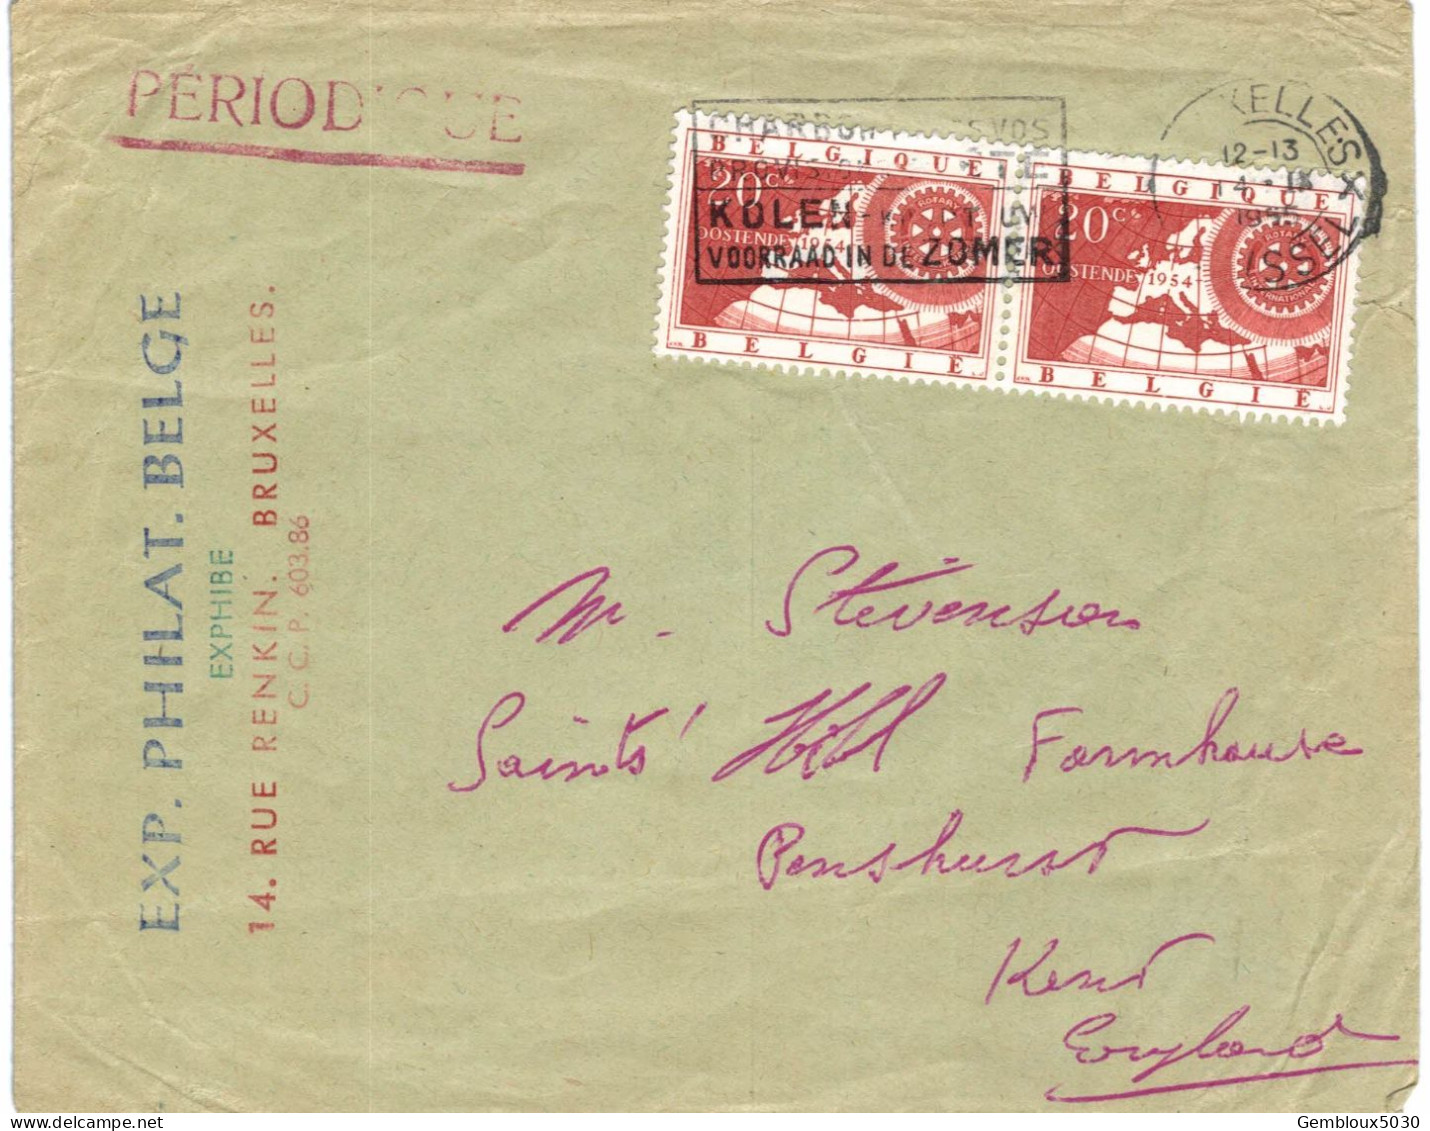 PÉRIODIQUE
CHARBON VOS
ÉTÉ
KOLEN
VOORRAAD IN DE ZOMER
BELGIQUE
20c
ROTARY
OOSTENDE 1954
BELGIË
BELGIQUE
20c
ROTARY
INTERNATIONAL
OOSTENDE 1954
BELGIË
XELLES X
12-13
4 - IX
1955
SSEL
EXP. PHILAT. BELGE
EXPHIBE
14. RUE RENKIN. BRUXELLES.
C.C.P. 603.86
M. Stevenson
Saints' Hill Farmhouse
Penshurst
Kent
England
Gembloux5030